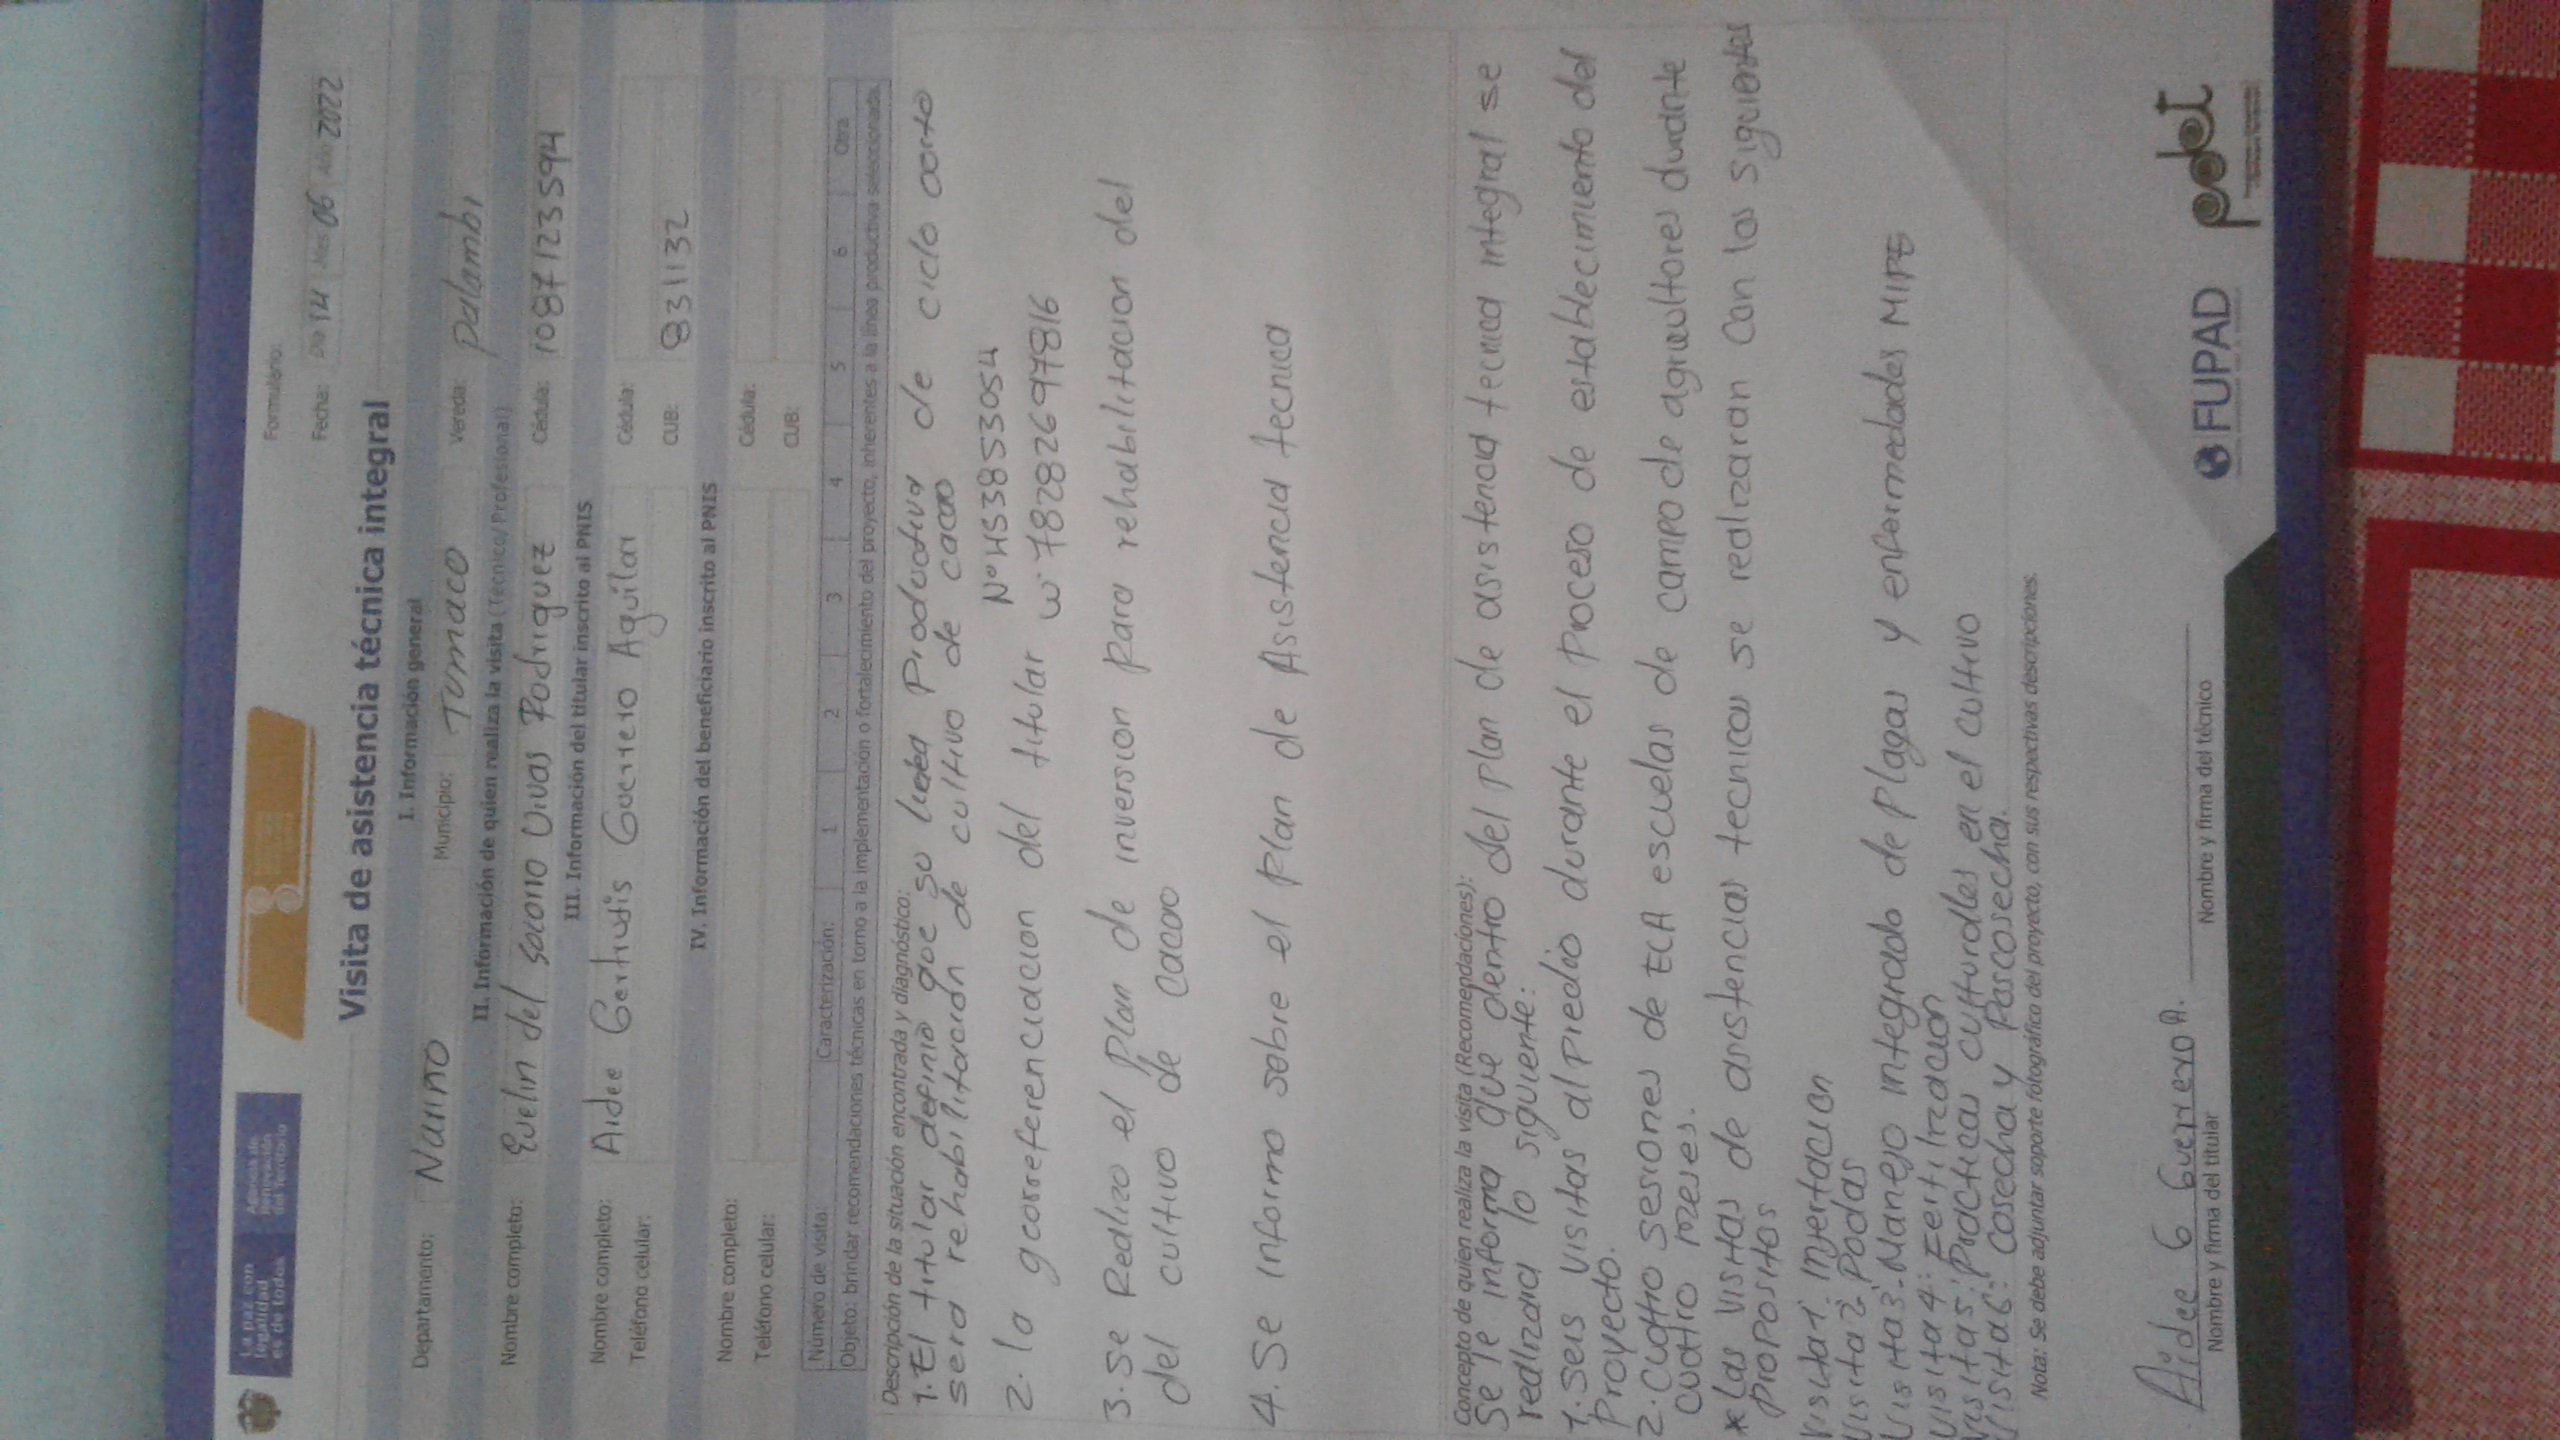 La paz con
legalidad
es de todos
Agencia de
Renovación
del Territorio
Formulario:
Fecha: Día 14 Mes 06 Año 2022
Visita de asistencia técnica integral
I. Información general
Departamento: Nariño Municipio: Tumaco Vereda: Palambi
II. Información de quien realiza la visita (Técnico/Profesional)
Nombre completo: Evelin del socorro Vivas Rodriguez Cédula: 1087123594
III. Información del titular inscrito al PNIS
Nombre completo: Aidee Gertrudis Guerrero Aguilar Cédula:
Teléfono celular: CUB: 831132
IV. Información del beneficiario inscrito al PNIS
Nombre completo: Cédula:
Teléfono celular: CUB:
Número de visita: Caracterización: 1 2 3 4 5 6 Otra
Objeto: brindar recomendaciones técnicas en torno a la implementación o fortalecimiento del proyecto, inherentes a la línea productiva seleccionada.
Descripción de la situación encontrada y diagnóstico:
1. El titular definio que su linea Productiva de ciclo corto
sera rehabilitación de cultivo de cacao
N° 4538553054
2. la georreferenciacion del titular w 78282697816
3. se Realizo el Plan de inversion para rehabilitacion del
del cultivo de cacao
4. Se informo sobre el Plan de Asistencia tecnica
Concepto de quien realiza la visita (Recomendaciones):
Se le informa que dentro del plan de asistencia tecnica integral se
realizara lo siguiente:
1. seis visitas al Predio durante el Proceso de establecimiento del
Proyecto.
2. Cuatro sesiones de ECA escuelas de campo de agricultores durante
cuatro meses.
* Las visitas de asistencias tecnicas se realizaran con los siguientes
propositos
Visita 1: injertacion
Visita 2: Podas
Visita 3: Manejo integrado de Plagas y enfermedades MIPE
Visita 4: Fertilizacion
Visita 5: Practicas culturales en el cultivo
Visita 6: Cosecha y Poscosecha.
Nota: Se debe adjuntar soporte fotográfico del proyecto, con sus respectivas descripciones.
Aidee G Guerrero A.
Nombre y firma del titular Nombre y firma del técnico
FUPAD pdet